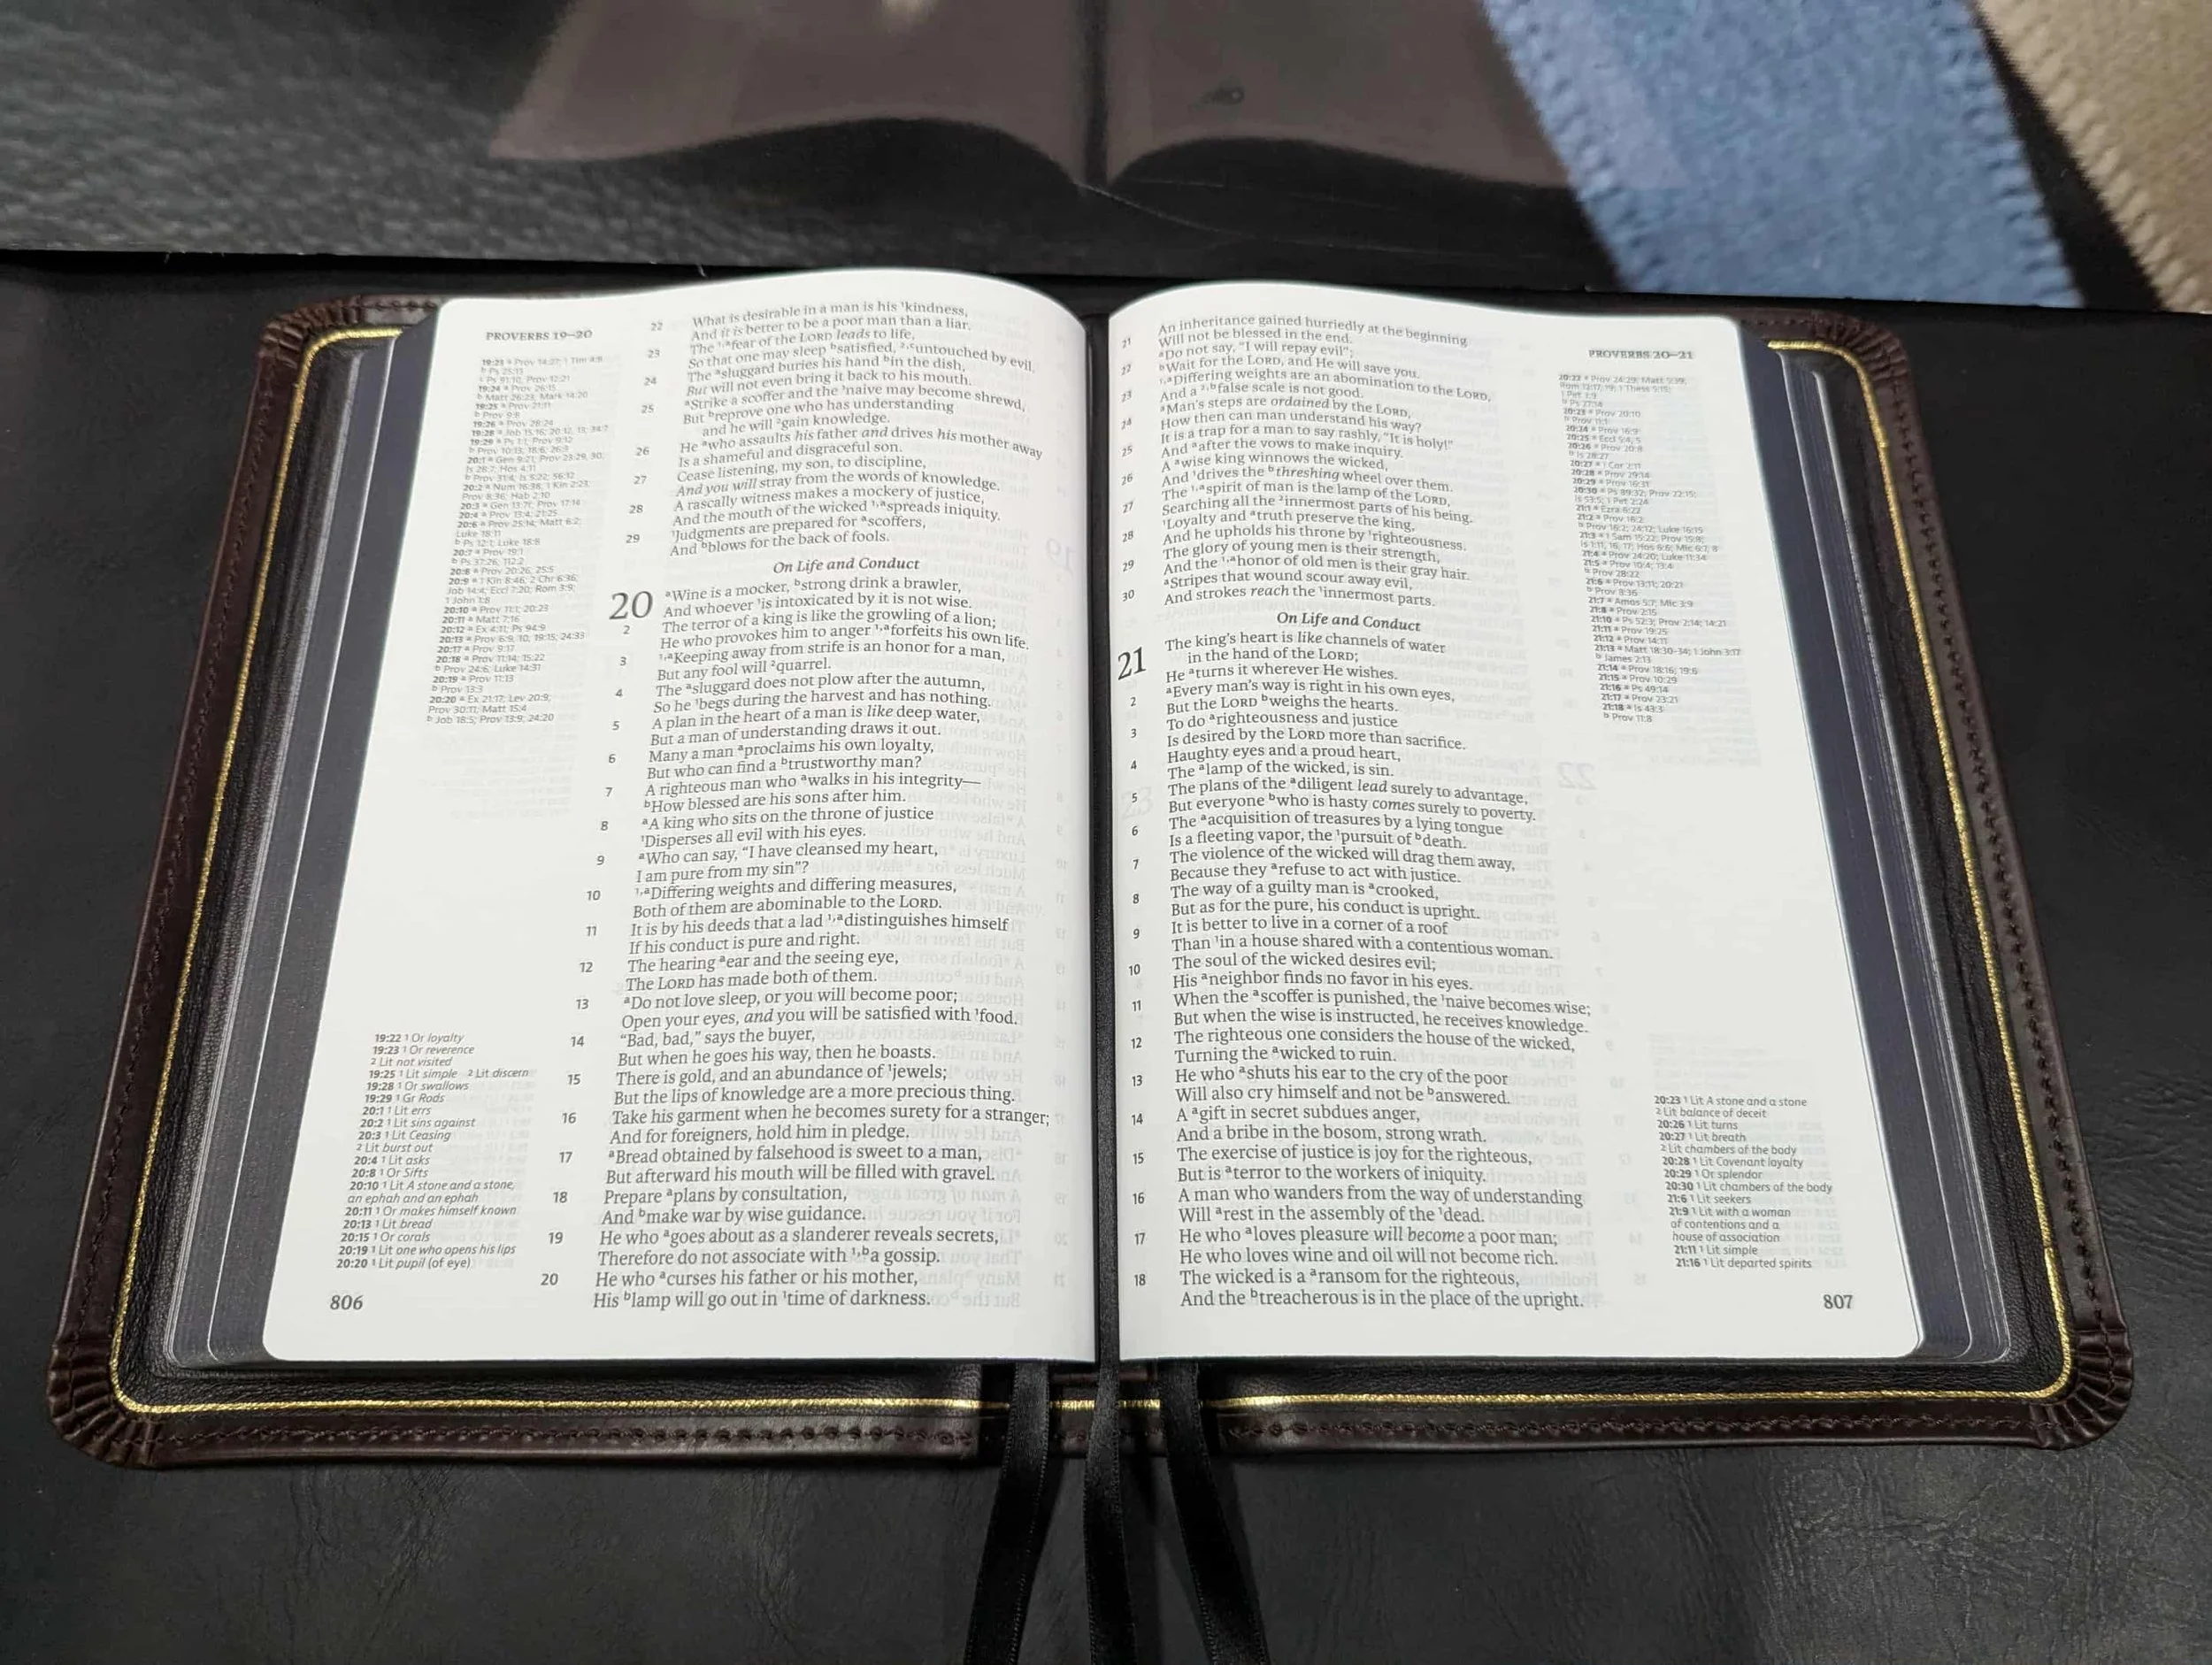 PROVERBS 19–20
19:23 a Prov 14:27; 1 Tim 4:8
b Ps 25:13
c Ps 91:10; Prov 12:21
19:24 a Prov 26:15
b Matt 26:23; Mark 14:20
19:25 a Prov 21:11
b Prov 9:8
19:26 a Prov 28:24
19:28 a Job 15:16; 20:12, 13; 34:7
19:29 a Ps 1:1; Prov 9:12
b Prov 10:13; 18:6; 26:3
20:1 a Gen 9:21; Prov 23:29, 30;
Is 28:7; Hos 4:11
b Prov 31:4; Is 5:22; 56:12
20:2 a Num 16:38; 1 Kin 2:23;
Prov 8:36; Hab 2:10
20:3 a Gen 13:7f; Prov 17:14
20:4 a Prov 13:4; 21:25
20:6 a Prov 25:14; Matt 6:2;
Luke 18:11
b Ps 12:1; Luke 18:8
20:7 a Prov 19:1
b Ps 37:26; 112:2
20:8 a Prov 20:26; 25:5
20:9 a 1 Kin 8:46; 2 Chr 6:36;
Job 14:4; Eccl 7:20; Rom 3:9;
1 John 1:8
20:10 a Prov 11:1; 20:23
20:11 a Matt 7:16
20:12 a Ex 4:11; Ps 94:9
20:13 a Prov 6:9, 10; 19:15; 24:33
20:17 a Prov 9:17
20:18 a Prov 11:14; 15:22
b Prov 24:6; Luke 14:31
20:19 a Prov 11:13
b Prov 13:3
20:20 a Ex 21:17; Lev 20:9;
Prov 30:11; Matt 15:4
b Job 18:5; Prov 13:9; 24:20
19:22 1 Or loyalty
19:23 1 Or reverence
2 Lit not visited
19:25 1 Lit simple 2 Lit discern
19:28 1 Or swallows
19:29 1 Gr Rods
20:1 1 Lit errs
20:2 1 Lit sins against
20:3 1 Lit Ceasing
2 Lit burst out
20:4 1 Lit asks
20:8 1 Or Sifts
20:10 1 Lit A stone and a stone,
an ephah and an ephah
20:11 1 Or makes himself known
20:13 1 Lit bread
20:15 1 Or corals
20:19 1 Lit one who opens his lips
20:20 1 Lit pupil (of eye)
806
22 What is desirable in a man is his 1kindness,
And it is better to be a poor man than a liar.
23 The 1,afear of the LORD leads to life,
So that one may sleep bsatisfied, 2,cuntouched by evil.
24 The asluggard buries his hand bin the dish,
But will not even bring it back to his mouth.
25 aStrike a scoffer and the 1naive may become shrewd,
But breprove one who has understanding
and he will 2gain knowledge.
26 He awho assaults his father and drives his mother away
Is a shameful and disgraceful son.
27 Cease listening, my son, to discipline,
And you will stray from the words of knowledge.
28 A rascally witness makes a mockery of justice,
And the mouth of the wicked 1,aspreads iniquity.
29 1Judgments are prepared for ascoffers,
And bblows for the back of fools.
On Life and Conduct
20 aWine is a mocker, bstrong drink a brawler,
And whoever 1is intoxicated by it is not wise.
2 The terror of a king is like the growling of a lion;
He who provokes him to anger 1,aforfeits his own life.
3 1,aKeeping away from strife is an honor for a man,
But any fool will 2quarrel.
4 The asluggard does not plow after the autumn,
So he 1begs during the harvest and has nothing.
5 A plan in the heart of a man is like deep water,
But a man of understanding draws it out.
6 Many a man aproclaims his own loyalty,
But who can find a btrustworthy man?
7 A righteous man who awalks in his integrity—
bHow blessed are his sons after him.
8 aA king who sits on the throne of justice
1Disperses all evil with his eyes.
9 aWho can say, “I have cleansed my heart,
I am pure from my sin”?
10 1,aDiffering weights and differing measures,
Both of them are abominable to the LORD.
11 It is by his deeds that a lad 1,adistinguishes himself
If his conduct is pure and right.
12 The hearing aear and the seeing eye,
The LORD has made both of them.
13 aDo not love sleep, or you will become poor;
Open your eyes, and you will be satisfied with 1food.
14 “Bad, bad,” says the buyer,
But when he goes his way, then he boasts.
15 There is gold, and an abundance of 1jewels;
But the lips of knowledge are a more precious thing.
16 Take his garment when he becomes surety for a stranger;
And for foreigners, hold him in pledge.
17 aBread obtained by falsehood is sweet to a man,
But afterward his mouth will be filled with gravel.
18 Prepare aplans by consultation,
And bmake war by wise guidance.
19 He who agoes about as a slanderer reveals secrets,
Therefore do not associate with 1,ba gossip.
20 He who acurses his father or his mother,
His blamp will go out in 1time of darkness.
21 An inheritance gained hurriedly at the beginning
Will not be blessed in the end.
22 aDo not say, “I will repay evil”;
bWait for the LORD, and He will save you.
23 1,aDiffering weights are an abomination to the LORD,
And a 2,bfalse scale is not good.
24 aMan's steps are ordained by the LORD,
How then can man understand his way?
25 It is a trap for a man to say rashly, “It is holy!”
And aafter the vows to make inquiry.
26 A awise king winnows the wicked,
And 1drives the bthreshing wheel over them.
27 The 1,aspirit of man is the lamp of the LORD,
Searching all the 2innermost parts of his being.
28 1Loyalty and atruth preserve the king,
And he upholds his throne by 1righteousness.
29 The glory of young men is their strength,
And the 1,ahonor of old men is their gray hair.
30 aStripes that wound scour away evil,
And strokes reach the 1innermost parts.
On Life and Conduct
21 The king's heart is like channels of water
in the hand of the LORD;
He aturns it wherever He wishes.
2 aEvery man's way is right in his own eyes,
But the LORD bweighs the hearts.
3 To do arighteousness and justice
Is desired by the LORD more than sacrifice.
4 Haughty eyes and a proud heart,
The alamp of the wicked, is sin.
5 The plans of the adiligent lead surely to advantage,
But everyone bwho is hasty comes surely to poverty.
6 The aacquisition of treasures by a lying tongue
Is a fleeting vapor, the 1pursuit of bdeath.
7 The violence of the wicked will drag them away,
Because they arefuse to act with justice.
8 The way of a guilty man is acrooked,
But as for the pure, his conduct is upright.
9 It is better to live in a corner of a roof
Than 1in a house shared with a contentious woman.
10 The soul of the wicked desires evil;
His aneighbor finds no favor in his eyes.
11 When the ascoffer is punished, the 1naive becomes wise;
But when the wise is instructed, he receives knowledge.
12 The righteous one considers the house of the wicked,
Turning the awicked to ruin.
13 He who ashuts his ear to the cry of the poor
Will also cry himself and not be banswered.
14 A agift in secret subdues anger,
And a bribe in the bosom, strong wrath.
15 The exercise of justice is joy for the righteous,
But is aterror to the workers of iniquity.
16 A man who wanders from the way of understanding
Will arest in the assembly of the 1dead.
17 He who aloves pleasure will become a poor man;
He who loves wine and oil will not become rich.
18 The wicked is a aransom for the righteous,
And the btreacherous is in the place of the upright.
PROVERBS 20–21
20:22 a Prov 24:29; Matt 5:39;
Rom 12:17, 19; 1 Thess 5:15;
1 Pet 3:9
b Ps 27:14
20:23 a Prov 20:10
b Prov 11:1
20:24 a Prov 16:9
20:25 a Eccl 5:4, 5
20:26 a Prov 20:8
b Is 28:27
20:27 a 1 Cor 2:11
20:28 a Prov 29:14
20:29 a Prov 16:31
20:30 a Ps 89:32; Prov 22:15;
Is 53:5; 1 Pet 2:24
21:1 a Ezra 6:22
21:2 a Prov 16:2
b Prov 16:2; 24:12; Luke 16:15
21:3 a 1 Sam 15:22; Prov 15:8;
Is 1:11, 16, 17; Hos 6:6; Mic 6:7, 8
21:4 a Prov 24:20; Luke 11:34
21:5 a Prov 10:4; 13:4
b Prov 28:22
21:6 a Prov 13:11; 20:21
b Prov 8:36
21:7 a Amos 5:7; Mic 3:9
21:8 a Prov 2:15
21:10 a Ps 52:3; Prov 2:14; 14:21
21:11 a Prov 19:25
21:12 a Prov 14:11
21:13 a Matt 18:30-34; 1 John 3:17
b James 2:13
21:14 a Prov 18:16; 19:6
21:15 a Prov 10:29
21:16 a Ps 49:14
21:17 a Prov 23:21
21:18 a Is 43:3
b Prov 11:8
20:23 1 Lit A stone and a stone
2 Lit balance of deceit
20:26 1 Lit turns
20:27 1 Lit breath
2 Lit chambers of the body
20:28 1 Lit Covenant loyalty
20:29 1 Or splendor
20:30 1 Lit chambers of the body
21:6 1 Lit seekers
21:9 1 Lit with a woman
of contentions and a
house of association
21:11 1 Lit simple
21:16 1 Lit departed spirits
807